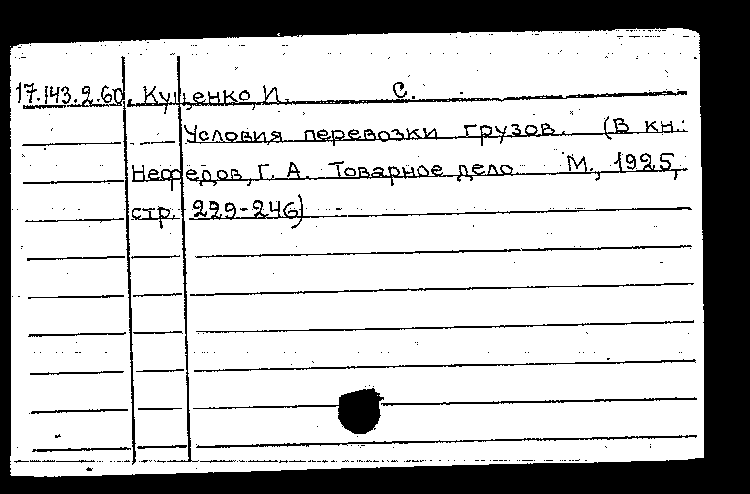 17.143.2.60. Кущенко, И. С.
Условия перевозки грузов. (В кн.:
Нефедов, Г. А. Товарное дело М., 1925,
стр. 229-246)